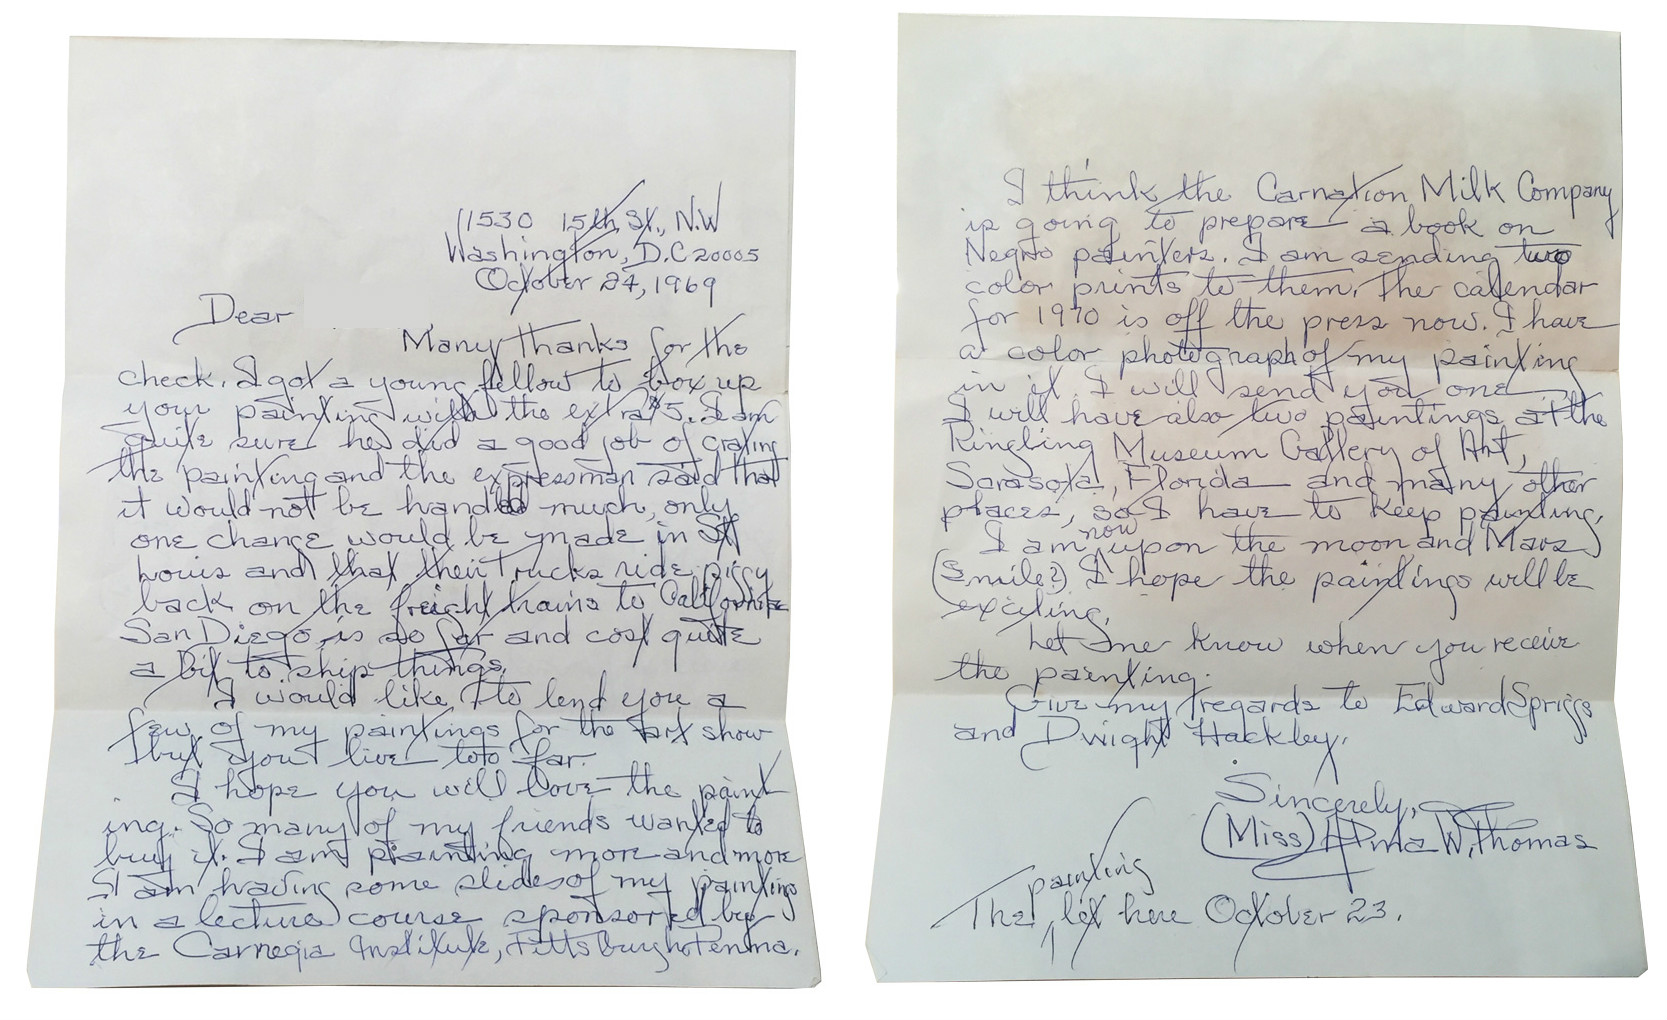 11530 15th St., N.W
Washington, D.C 20005
October 24, 1969
Dear
Many thanks for the
check. I got a young fellow to box up
your painting with the extra $5. I am
quite sure he did a good job of crating
the painting and the expressman said that
it would not be handled much, only
one change would be made in St
Louis and that their trucks ride piggy
back on the freight trains to California
San Diego is so far and cost quite
a bit to ship things.
I would like to lend you a
few of my paintings for the art show
but you live too far.
I hope you will love the paint
ing. So many of my friends wanted to
buy it. I am painting more and more
I am having some slides of my paintings
in a lecture course sponsored by
the Carnegia Institute, Pittsburgh Penna.
I think the Carnation Milk Company
is going to prepare a book on
Negro painters. I am sending two
color prints to them. The calendar
for 1970 is off the press now. I have
a color photograph of my painting
in it. I will send you one
I will have also two paintings at the
Ringling Museum Gallery of Art,
Sarasota, Florida and many other
places, so I have to keep painting.
I am now upon the moon and Mars
(Smile?) I hope the paintings will be
exciting.
Let me know when you receive
the painting.
Give my regards to Edward Spriggs
and Dwight Hackley.
Sincerely,
(Miss) Alma W. Thomas
The painting left here October 23.